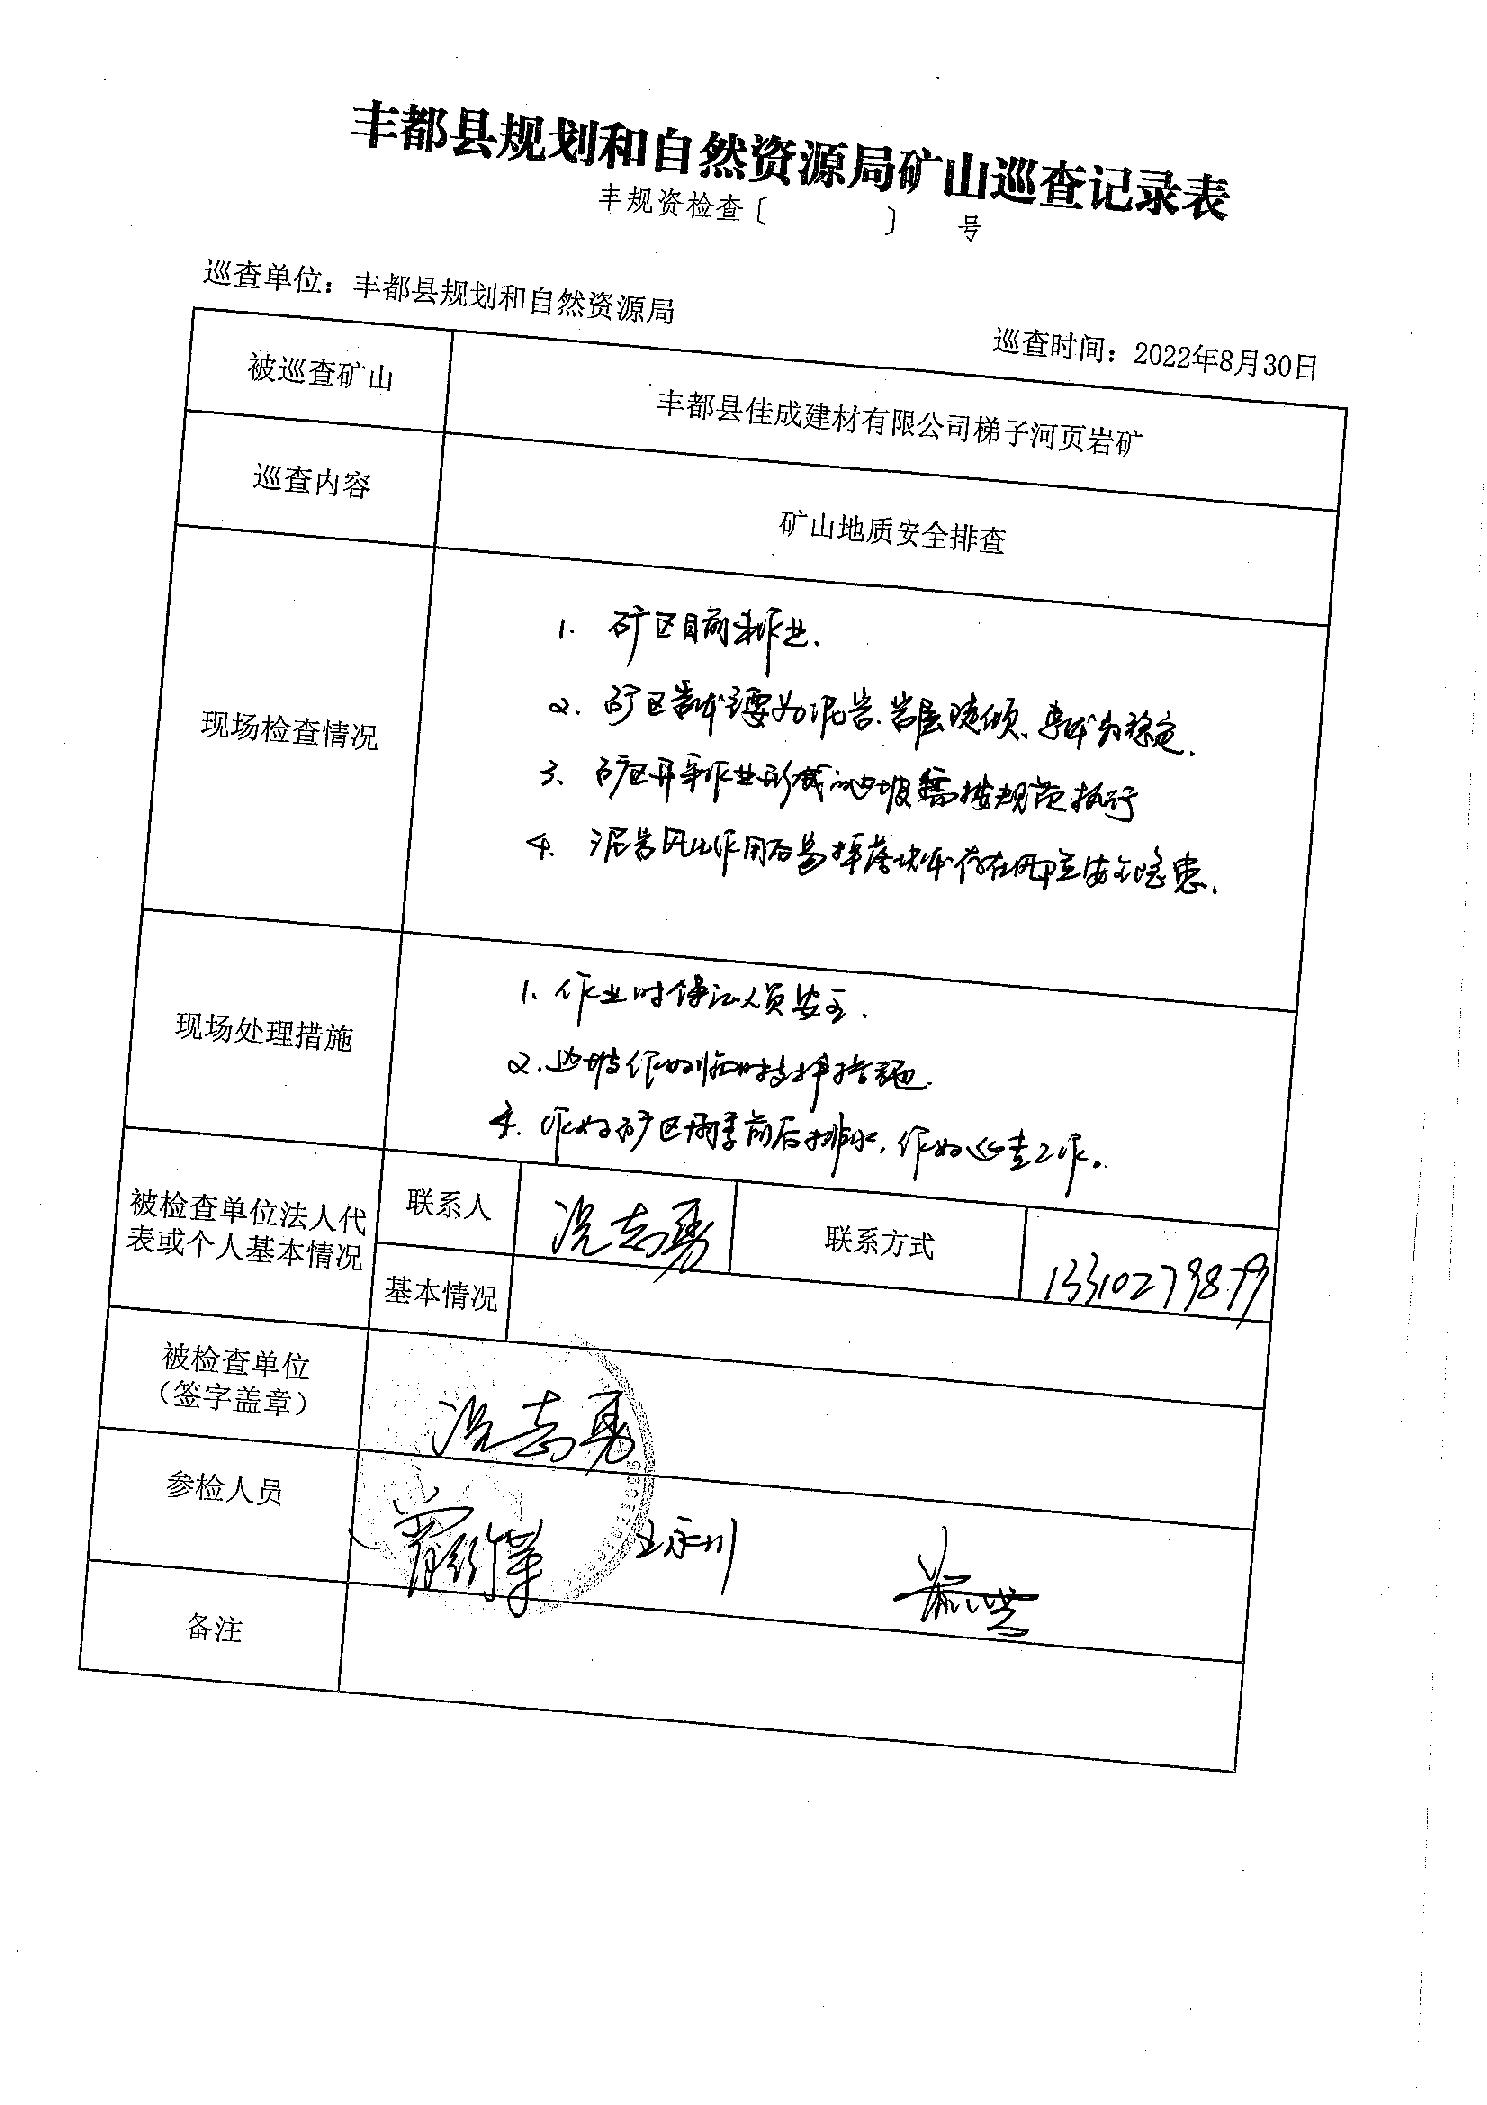 丰都县规划和自然资源局矿山巡查记录表
丰规资检查〔 〕 号
巡查单位：丰都县规划和自然资源局
巡查时间：2022年8月30日
被巡查矿山
丰都县佳成建材有限公司梯子河页岩矿
巡查内容
矿山地质安全排查
现场检查情况
1. 矿区目前未作业.
2. 矿区岩体主要为泥岩、岩层陡倾、整体为稳定.
3. 矿区开采作业形成边坡需按规范执行
4. 泥岩风化作用后易掉落块体存在安全隐患.
现场处理措施
1. 作业时保证人员安全.
2. 边坡作好临时支护措施.
3. 作好矿区雨季前后排水, 作好巡查工作。
被检查单位法人代
表或个人基本情况
联系人
况志勇
联系方式
13310279879
基本情况
被检查单位
（签字盖章）
况志勇
参检人员
王永川
备注